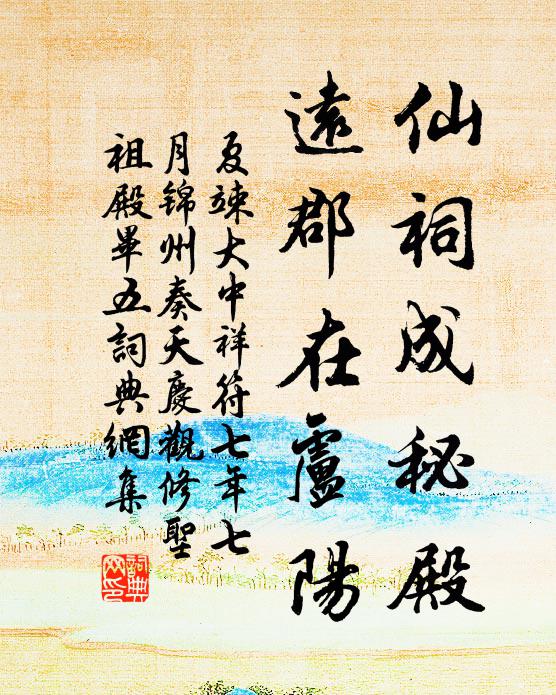 仙祠成秘殿
遠郡在盧陽
夏竦大中祥符七年七
月錦州奏天慶觀修聖
祖殿畢五詞典網集
詞典
网印